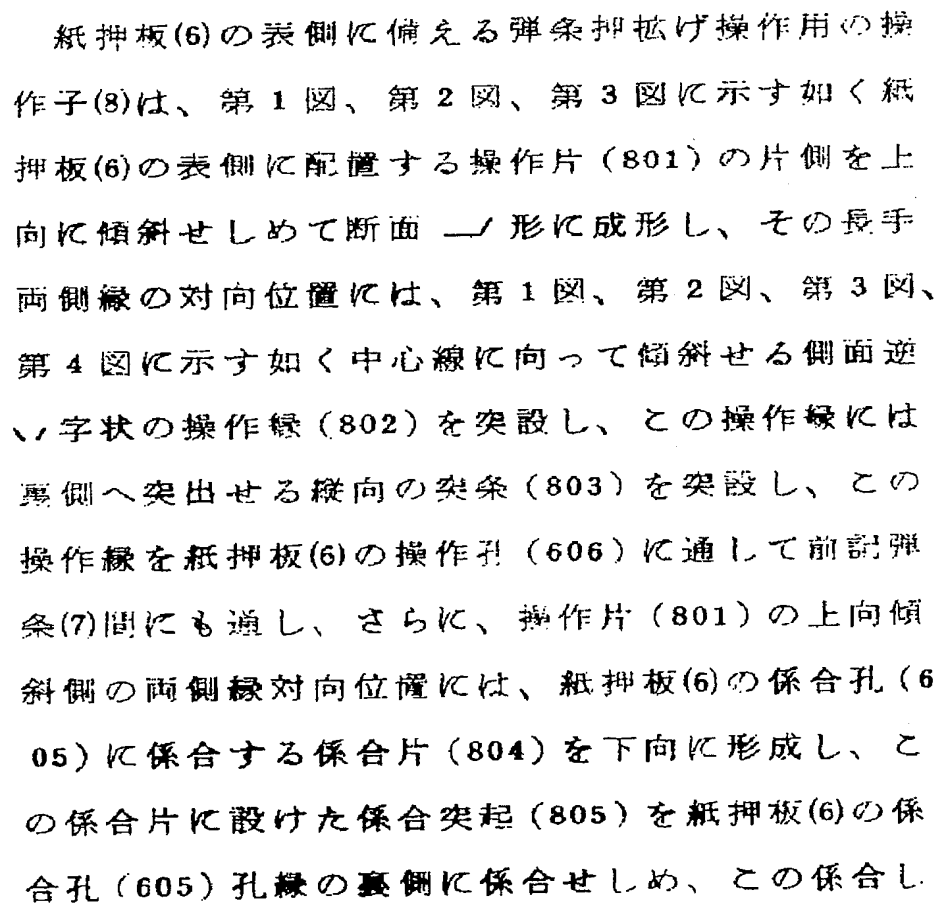 紙押板(6)の表側に備える弾条押拡げ操作用の操
作子(8)は、第1図、第2図、第3図に示す如く紙
押板(6)の表側に配置する操作片（801）の片側を上
向に傾斜せしめて断面 __/ 形に成形し、その長手
両側縁の対向位置には、第1図、第2図、第3図、
第4図に示す如く中心線に向って傾斜せる側面逆
\/字状の操作縁（802）を突設し、この操作縁には
裏側へ突出せる縦向の突条（803）を突設し、この
操作縁を紙押板(6)の操作孔（606）に通して前記弾
条(7)間にも通し、さらに、操作片（801）の上向傾
斜側の両側縁対向位置には、紙押板(6)の係合孔（6
05）に係合する係合片（804）を下向に形成し、こ
の係合片に設けた係合突起（805）を紙押板(6)の係
合孔（605）孔縁の裏側に係合せしめ、この係合し